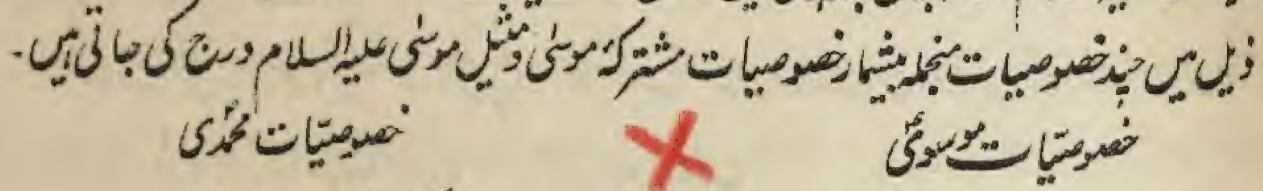 ذیل میں چند خصوصیات منجملہ بیشمار خصوصیات مشترکہٴ موسیٰ و مثیل موسیٰ علیہ السلام درج کی جاتی ہیں۔
خصوصیّات موسویؑ خصوصیّات محمدیؐ